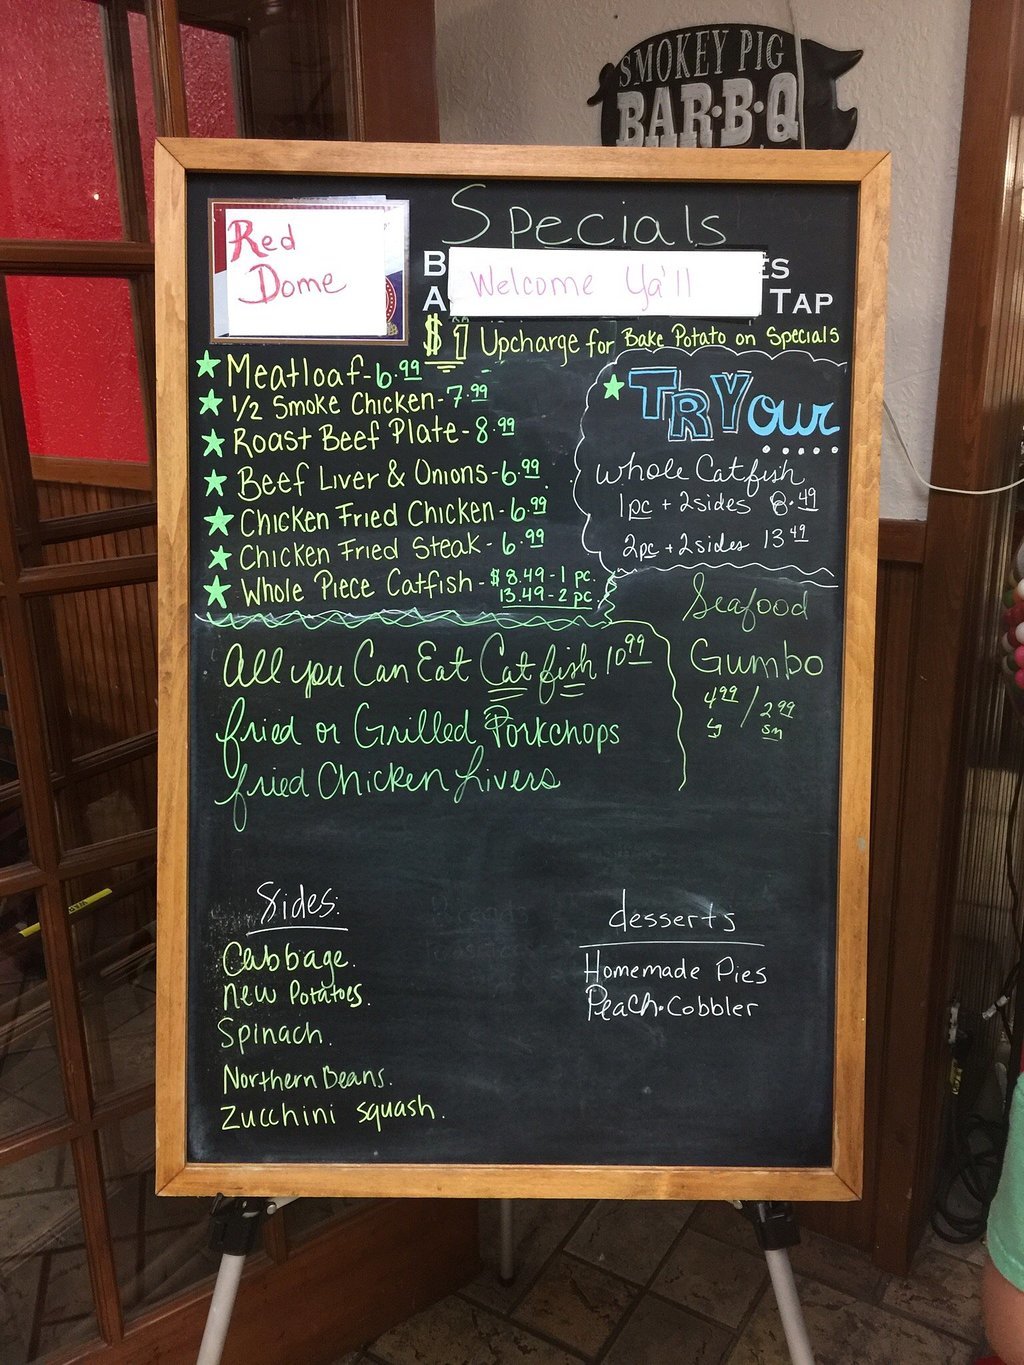 SMOKEY PIG
BAR·B·Q
Specials
Red
Dome
Welcome Ya'll
TAP
$1 Upcharge for Bake Potato on Specials
Meatloaf-6.99
1/2 Smoke Chicken-7.99
Roast Beef Plate-8.99
Beef Liver & Onions-6.99
Chicken Fried Chicken-6.99
Chicken Fried Steak-6.99
Whole Piece Catfish-$8.49-1 pc.
13.49-2 pc.
TRY Our
....
Whole Catfish
1pc + 2 sides 8.49
2pc + 2 sides 13 49
Seafood
Gumbo
4 99 / 2 99
sm
All you Can Eat Catfish 10 99
fried or Grilled Porkchops
fried Chicken Livers
Sides:
Cabbage.
New Potatoes.
Spinach.
Northern Beans.
Zucchini squash.
desserts
Homemade Pies
Peach·Cobbler